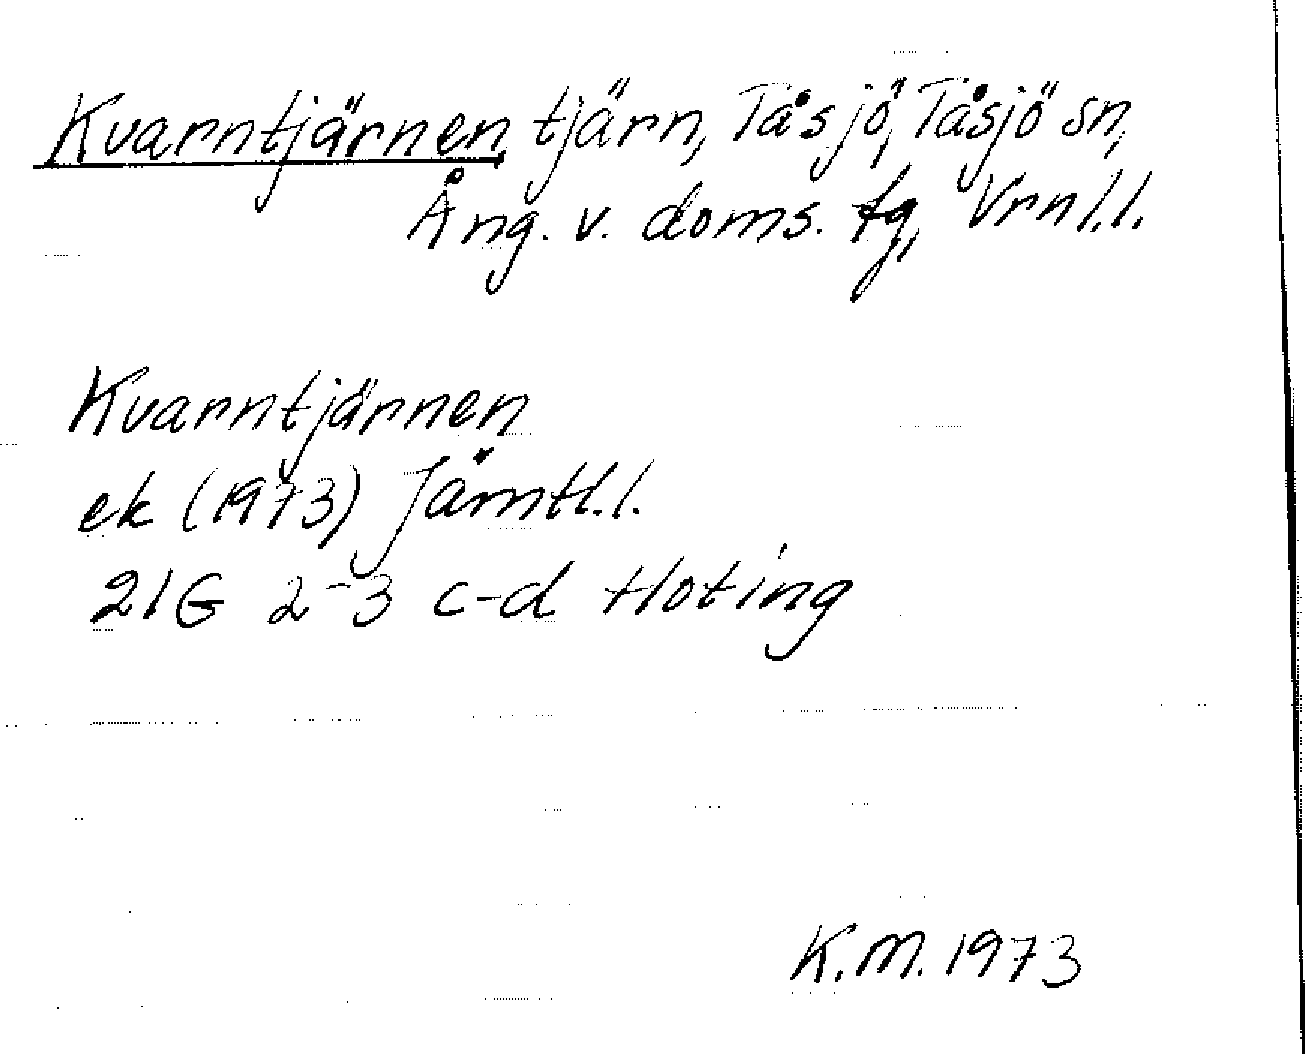 Kvarntjärnen, tjärn, Tåsjö, Tåsjö sn,
Ång. v. doms. tg, Vrnl.l.
Kvarntjärnen
ek (1973) Jämtl.l.
21G 2-3 c-d Hoting
K.M. 1973